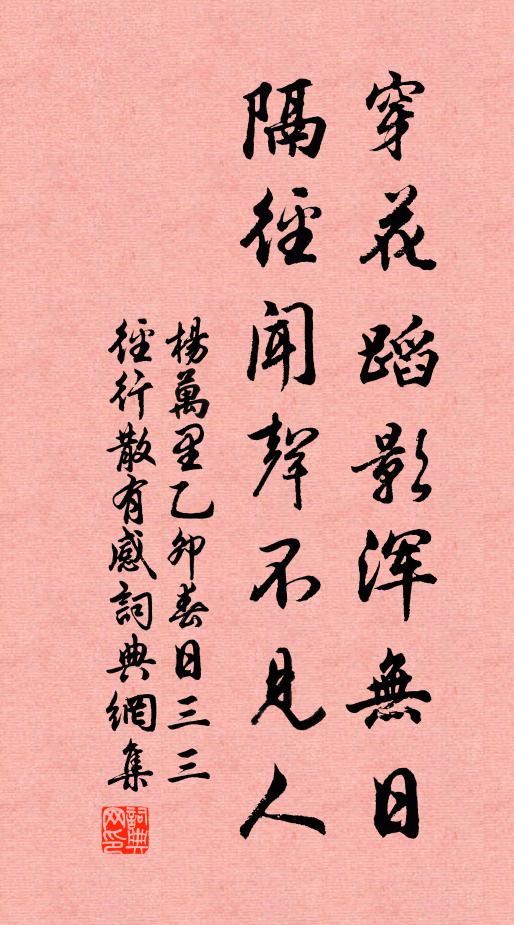 穿花蹈影浑無日
隔徑聞聲不見人
楊萬里乙卯春日三三
徑行散有感詞典網集
詞典网印